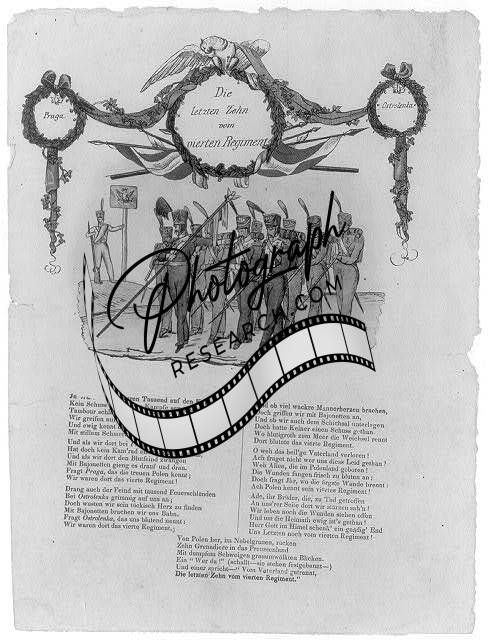 Die
letzten Zehn
vom
vierten Regiment
Praga.
Ostrolenka
Photograph
RESEARCH.COM
Tausend auf den
Kein Schuss
Tambour
Wir greifen
Und ewig
Mit stillem
Und als wir dort
Hat doch kein Kam'rad
Und als wir dort den Blutfeind zwangen
Mit Bajonetten gieng es drauf und dran.
Fragt Praga, das die treuen Polen kennt;
Wir waren dort das vierte Regiment!
Drang auch der Feind mit tausend Feuerschlünden
Bei Ostrolenka grimmig auf uns an;
Doch wussten wir sein tückisch Herz zu finden
Mit Bajonetten brachen wir uns Bahn.
Fragt Ostrolenka, das uns blutend nennt:
Wir waren dort das vierte Regiment,
Und ob viel wackre Männerherzen brachen,
Doch griffen wir mit Bajonetten an,
Und ob wir auch dem Schicksal unterlagen
Doch hatte Keiner einen Schuss gethan.
Wo blutigroth zum Meer die Weichsel rennt
Dort blutete das vierte Regiment.
O weh das heil'ge Vaterland verloren!
Ach fraget nicht wer uns diess Leid gethan?
Weh Allen, die im Polenland geboren!
Die Wunden fangen frisch zu bluten an;
Doch fragt Ihr, wo die ärgste Wunde brennt:
Ach Polen kennt sein viertes Regiment!
Ade, ihr Brüder, die, zu Tod getroffen
An uns'rer Seite dort wir stürzen seh'n!
Wir leben noch die Wunden stehen offen
Und um die Heimath ewig ist's gethan!
Herr Gott im Himmel schenk' ein gnädig' End
Uns Letzten noch vom vierten Regiment!
Von Polen her, im Nebelgrauen, rücken
Zehn Grenadiere in das Preussenland
Mit dumpfem Schweigen gramumwölkten Blicken.
Ein "Wer da!" (schallt—sie stehen festgebannt—)
Und einer spricht—" Vom Vaterland getrennt,
Die letzten Zehn vom vierten Regiment."